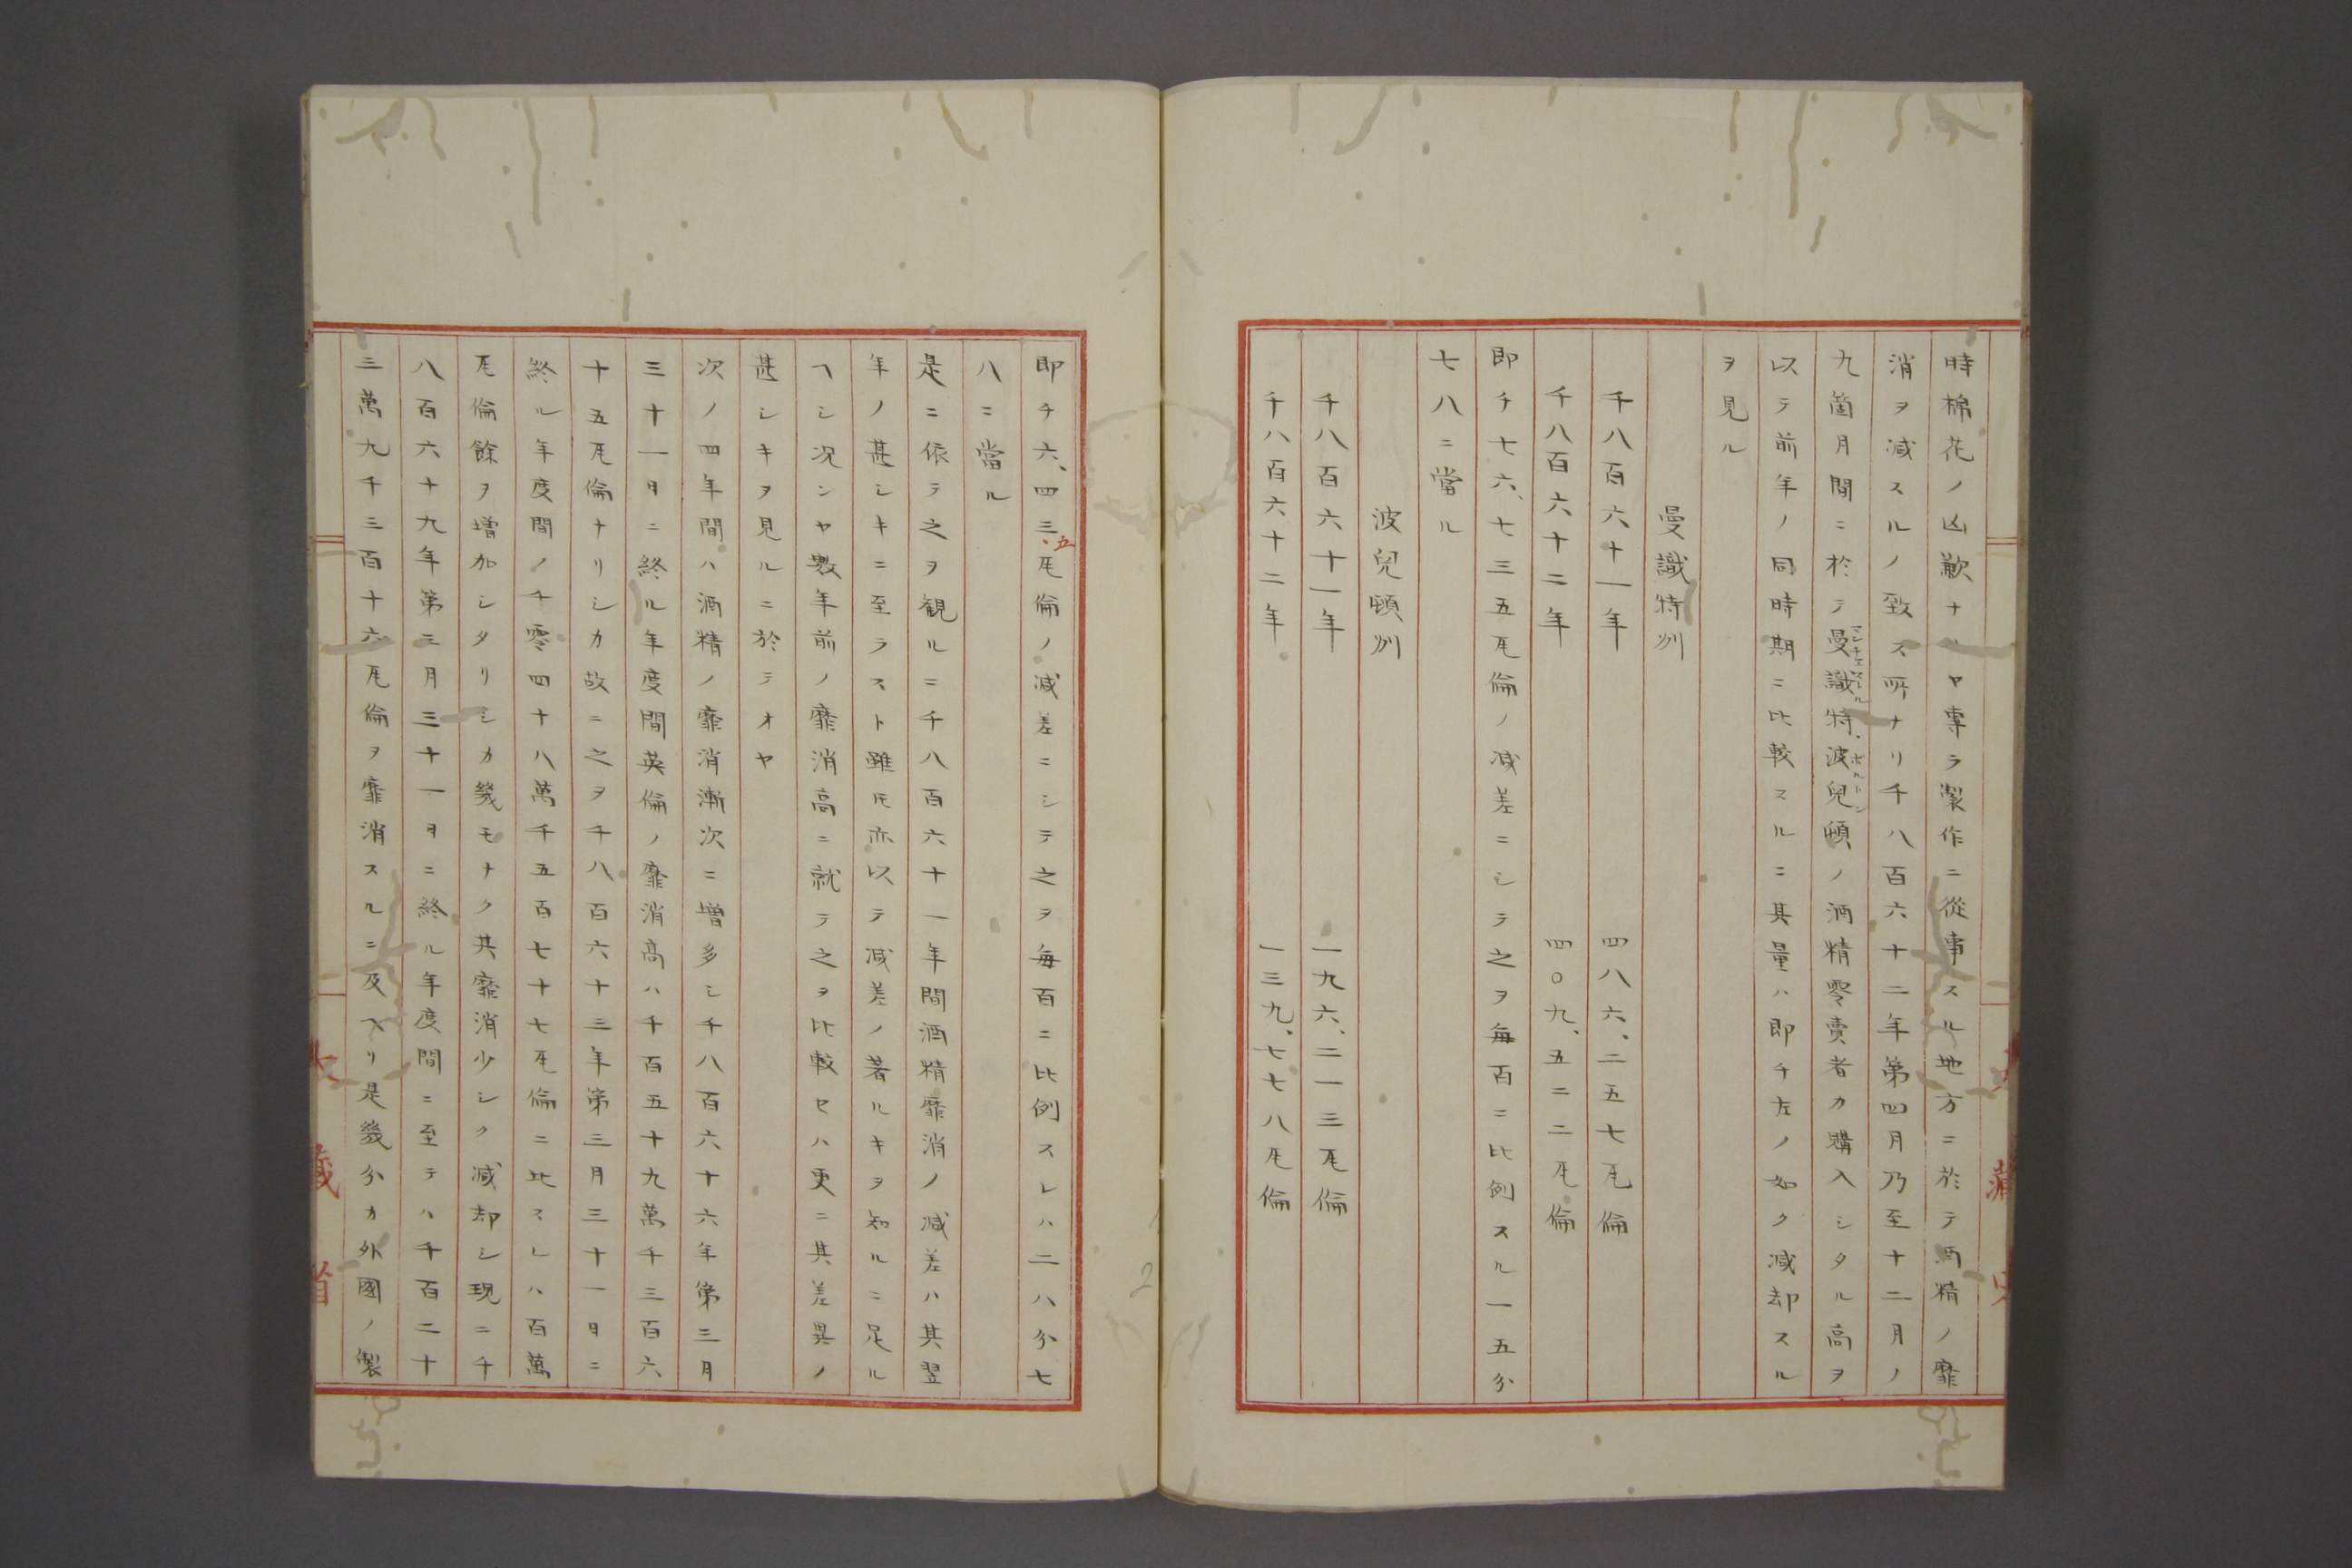 時棉花ノ凶歉ナルヤ專ラ製作ニ從事スル地方ニ於テ酒精ノ靡
消ヲ减スルノ致ス所ナリ千八百六十二年第四月乃至十二月ノ
九箇月間ニ於テ曼識特波兒頓ノ酒精零賣者カ購入シタル高ヲ
以テ前年ノ同時期ニ比較スルニ其量ハ即チ左ノ如ク减却スル
ヲ見ル
曼識特州
千八百六十一年 四八六、二五七瓦倫
千八百六十二年 四〇九、五二二瓦倫
即チ七六、七三五瓦倫ノ减差ニシテ之ヲ每百ニ比例スル一五分
七八ニ當ル
波兒頓州
千八百六十一年 一九六、二一三瓦倫
千八百六十二年 一三九、七七八瓦倫
即チ六、四三五瓦倫ノ减差ニシテ之ヲ每百ニ比例スレハ二八分七
八ニ當ル
是ニ依テ之ヲ観ルニ千八百六十一年間酒精靡消ノ减差ハ其翌
年ノ甚シキニ至ラスト雖モ亦以テ减差ノ著ルキヲ知ルニ足ル
ヘシ况ンヤ數年前ノ靡消高ニ就テ之ヲ比較セハ更ニ其差異ノ
甚シキヲ見ルニ於テオヤ
次ノ四年間ハ酒精ノ靡消漸次ニ增多シ千八百六十六年第三月
三十一日ニ終ル年度間英倫ノ靡消高ハ千百五十九萬千三百六
十五瓦倫ナリシカ故ニ之ヲ千八百六十三年第三月三十一日ニ
終ル年度間ノ千零四十八萬千五百七十七瓦倫ニ比スレハ百萬
瓦倫餘ヲ增加シタリシカ幾モナク其靡消少シク减却シ現ニ千
八百六十九年第三月三十一日ニ終ル年度間ニ至テハ千百二十
三萬九千三百十六瓦倫ヲ靡消スルニ及ヘリ是幾分カ外國ノ製